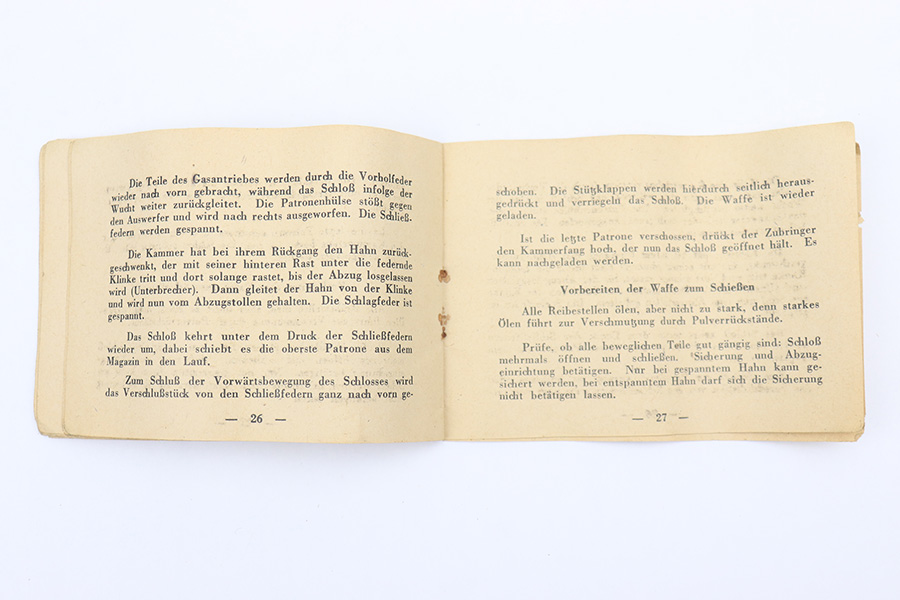 Die Teile des Gasantriebes werden durch die Vorholfeder
wieder nach vorn gebracht, während das Schloß infolge der
Wucht weiter zurückgleitet. Die Patronenhülse stößt gegen
den Auswerfer und wird nach rechts ausgeworfen. Die Schließ-
federn werden gespannt.
Die Kammer hat bei ihrem Rückgang den Hahn zurück-
geschwenkt, der mit seiner hinteren Rast unter die federnde
Klinke tritt und dort solange rastet, bis der Abzug losgelassen
wird (Unterbrecher). Dann gleitet der Hahn von der Klinke
und wird nun vom Abzugstollen gehalten. Die Schlagfeder ist
gespannt.
Das Schloß kehrt unter dem Druck der Schließfedern
wieder um, dabei schiebt es die oberste Patrone aus dem
Magazin in den Lauf.
Zum Schluß der Vorwärtsbewegung des Schlosses wird
das Verschlußstück von den Schließfedern ganz nach vorn ge-
— 26 —
schoben. Die Stützklappen werden hierdurch seitlich heraus-
gedrückt und verriegeln das Schloß. Die Waffe ist wieder
geladen.
Ist die letzte Patrone verschossen, drückt der Zubringer
den Kammerfang hoch, der nun das Schloß geöffnet hält. Es
kann nachgeladen werden.
Vorbereiten der Waffe zum Schießen
Alle Reibestellen ölen, aber nicht zu stark, denn starkes
Ölen führt zur Verschmutzung durch Pulverrückstände.
Prüfe, ob alle beweglichen Teile gut gängig sind: Schloß
mehrmals öffnen und schließen. Sicherung und Abzug-
einrichtung betätigen. Nur bei gespanntem Hahn kann ge-
sichert werden, bei entspanntem Hahn darf sich die Sicherung
nicht betätigen lassen.
— 27 —